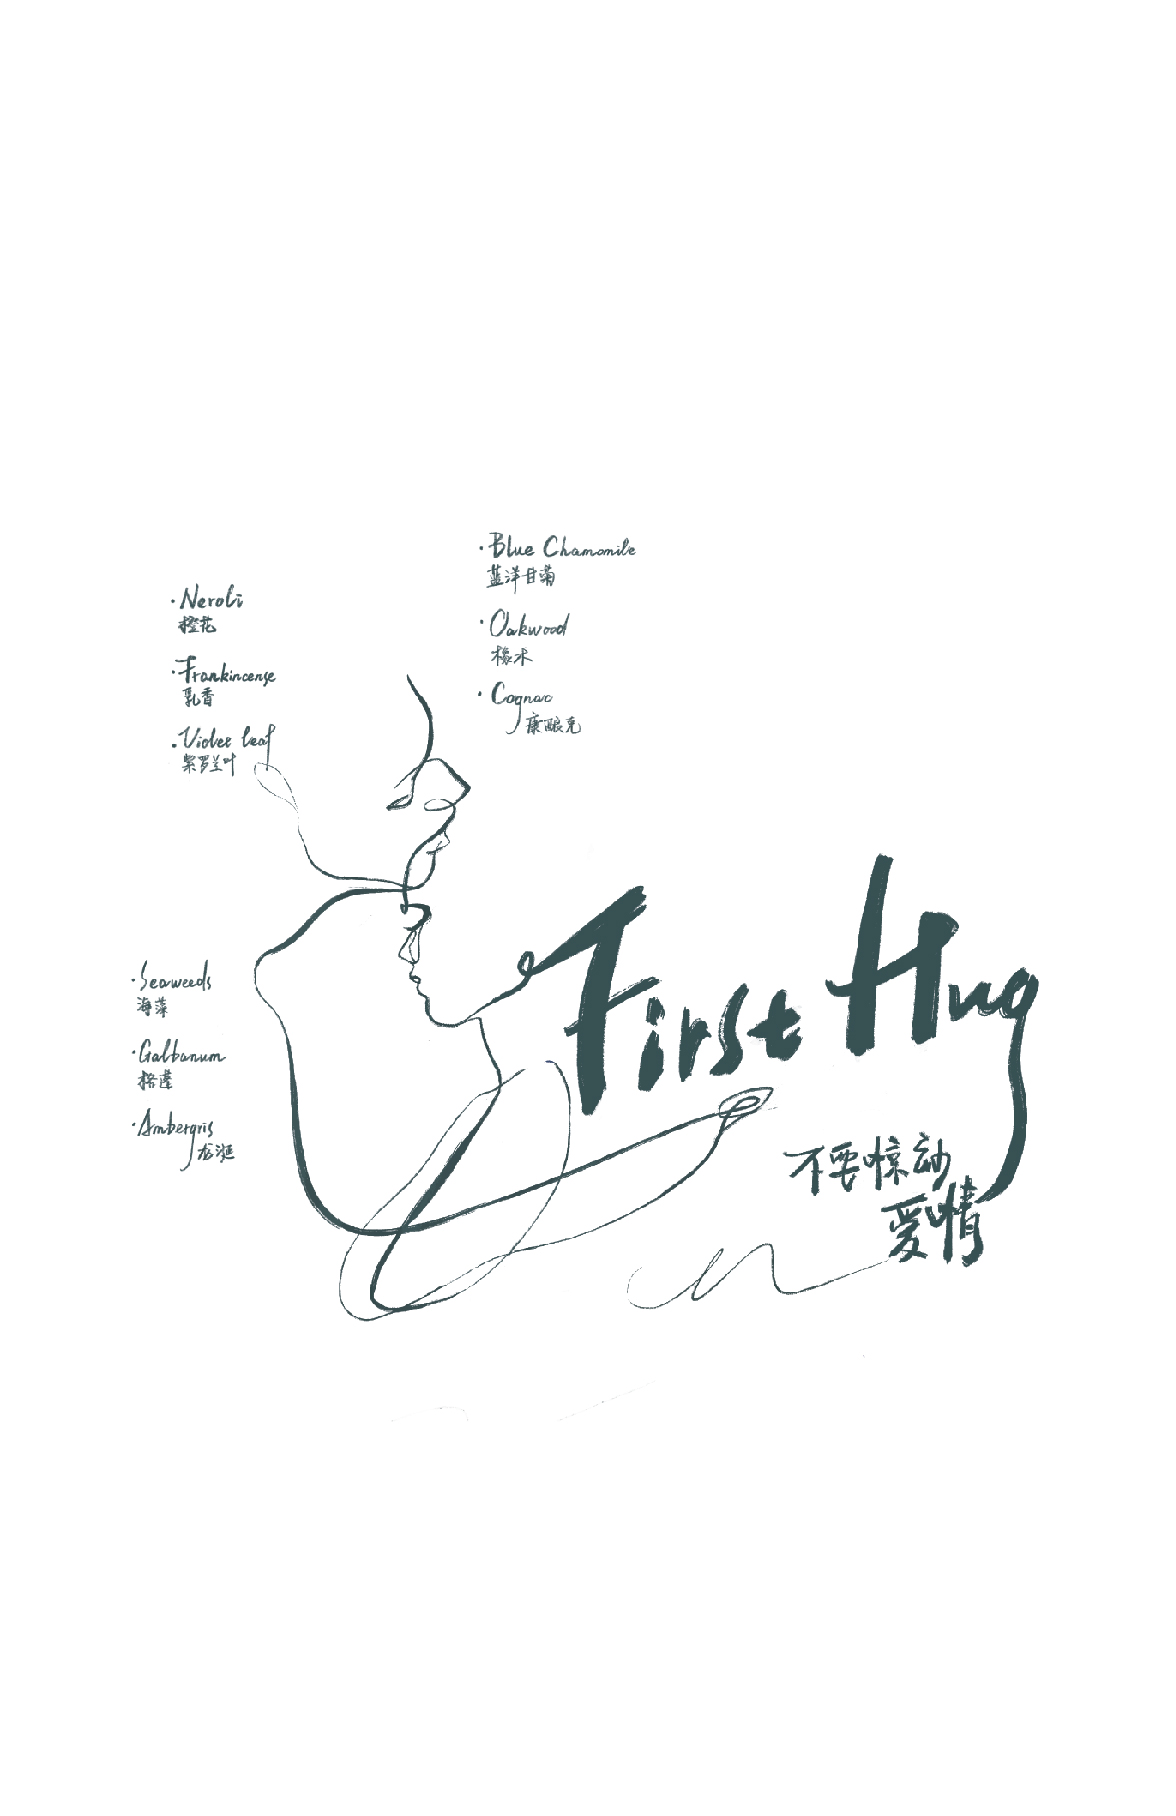 ·Blue Chamomile
蓝洋甘菊
·Oakwood
橡木
·Cognac
康酿克
·Neroli
橙花
·Frankincense
乳香
·Violet leaf
紫罗兰叶
First Hug
不要惊动
爱情
·Seaweeds
海藻
·Galbanum
格蓬
·Ambergris
龙涎